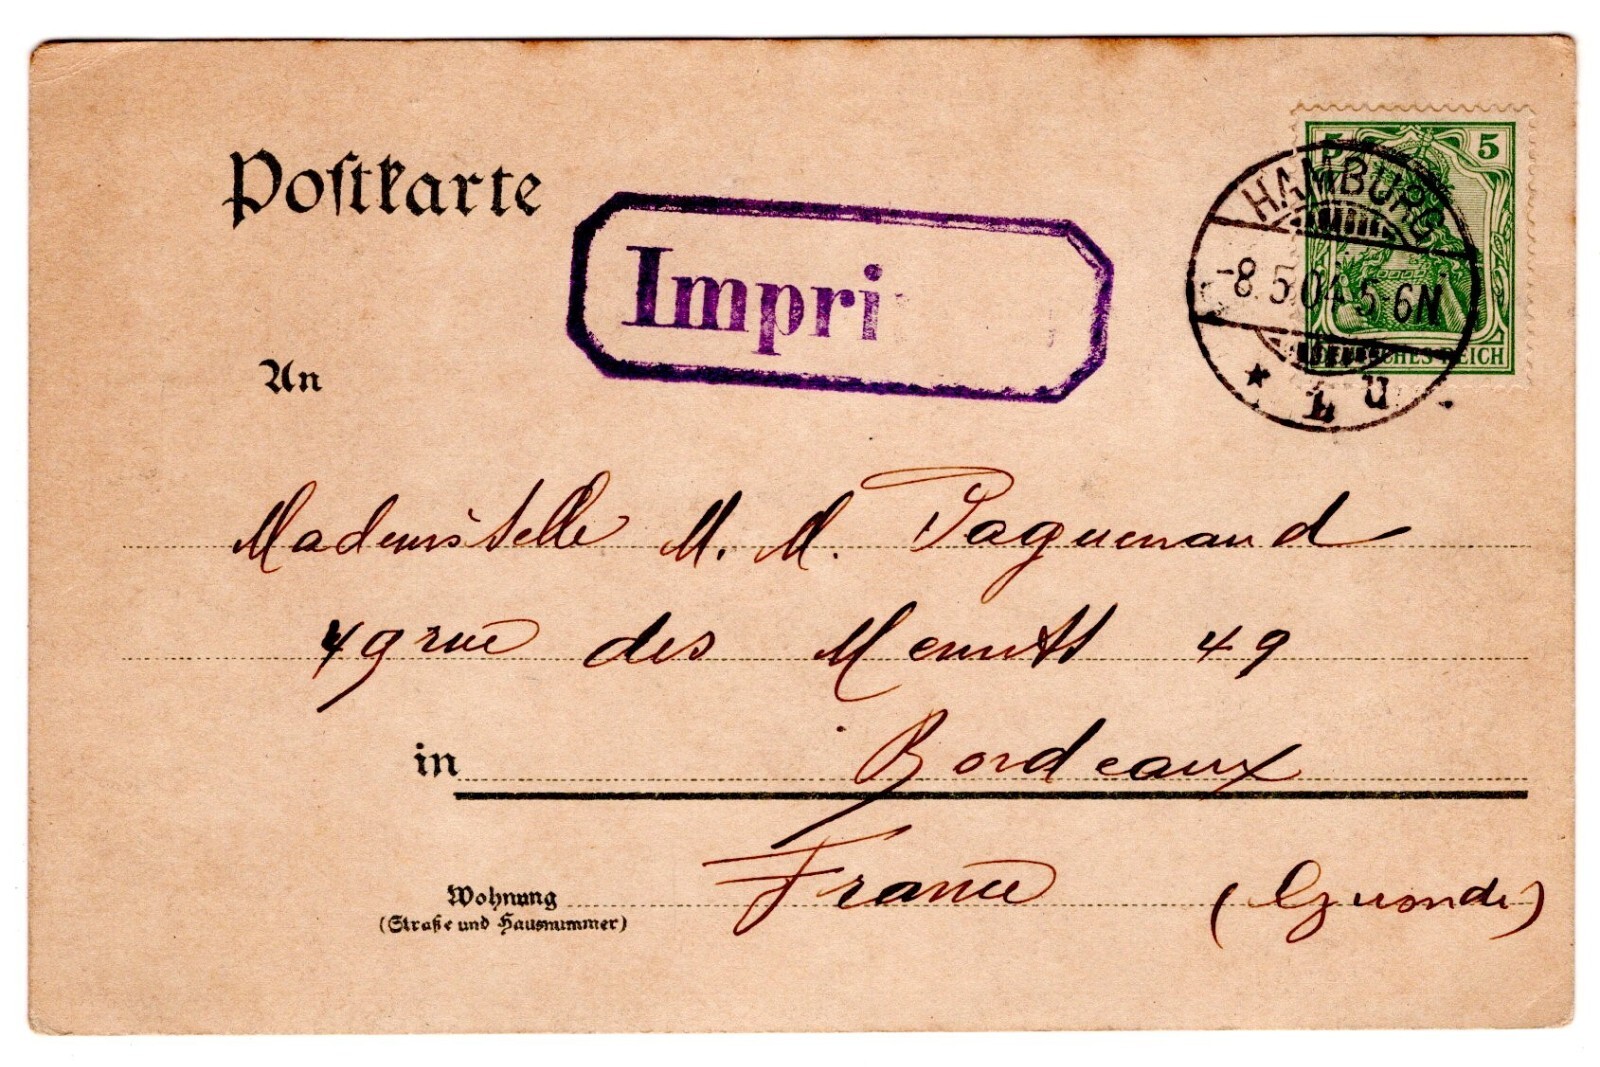 Postkarte
Impri
5 5
HAMBURG
-8.5.04.5-6N
DEUTSCHES REICH
* 1 u
An
Mademoiselle M. M. Paguenaud
49 rue des Menuts 49
in Bordeaux
Wohnung France (Gironde)
(Straße und Hausnummer)